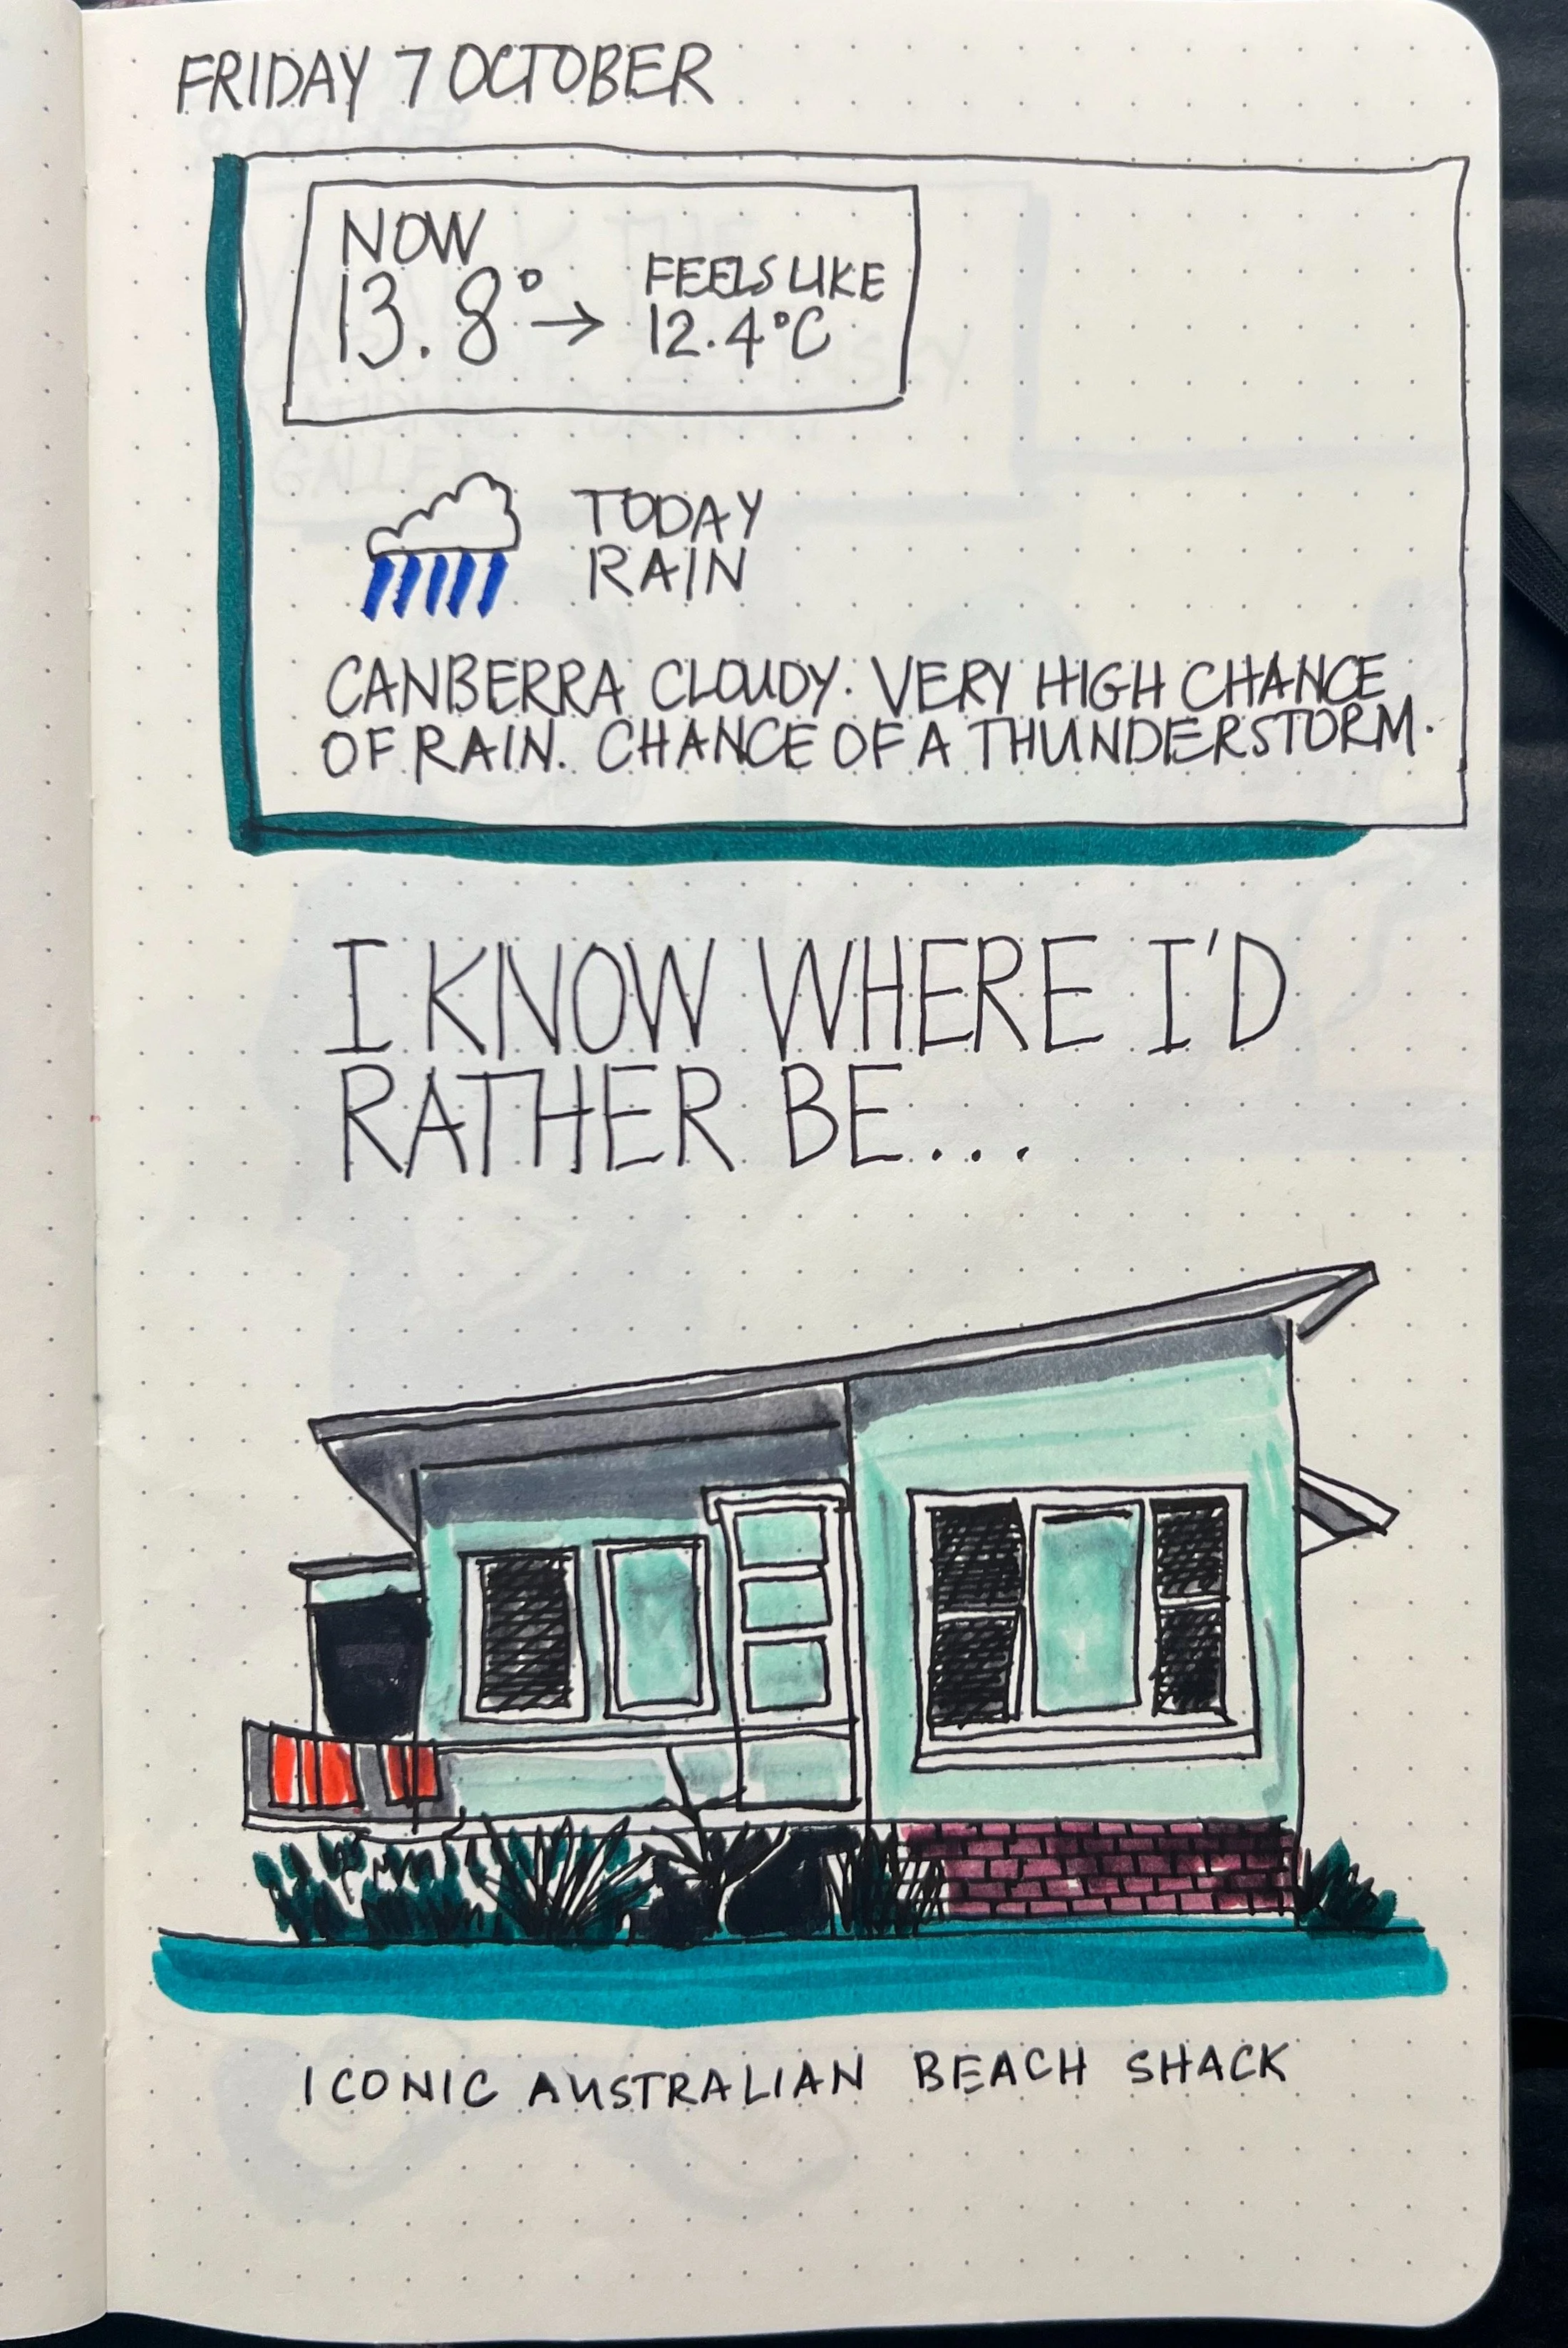 FRIDAY 7 OCTOBER
NOW
13.8° → FEELS LIKE
12.4°C
TODAY
RAIN
CANBERRA CLOUDY. VERY HIGH CHANCE
OF RAIN. CHANCE OF A THUNDERSTORM.
I KNOW WHERE I'D
RATHER BE...
ICONIC AUSTRALIAN BEACH SHACK